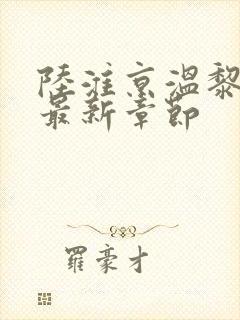 陸淮京溫黎
最新章節
羅豪才